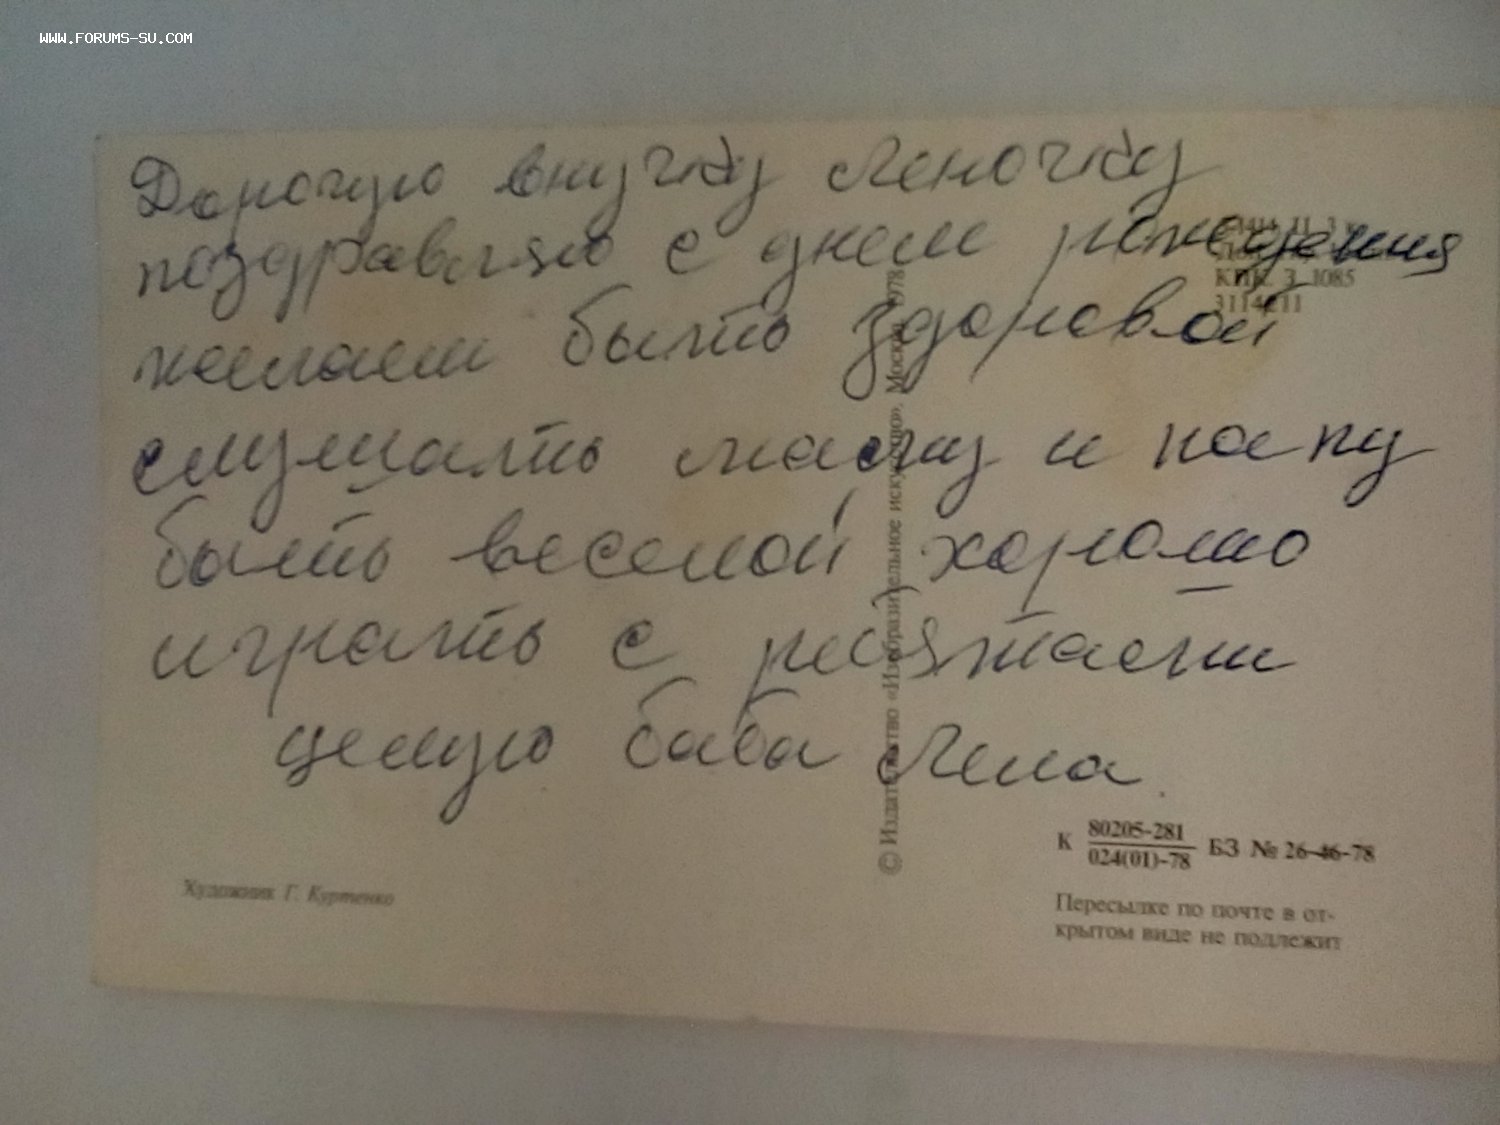 WWW.FORUMS-SU.COM
Дорогую внучку Леночку
поздравляю с днем рождения
желаем быть здоровой
слушать маму и папу
быть веселой хорошо
играть с ребятами
целую баба Лена
КПК. З. 1085
3114211
© Издательство «Изобразительное искусство». Москва. 1978
Художник Г. Куртенко
К 80205-281
024(01)-78 БЗ № 26-46-78
Пересылке по почте в от-
крытом виде не подлежит